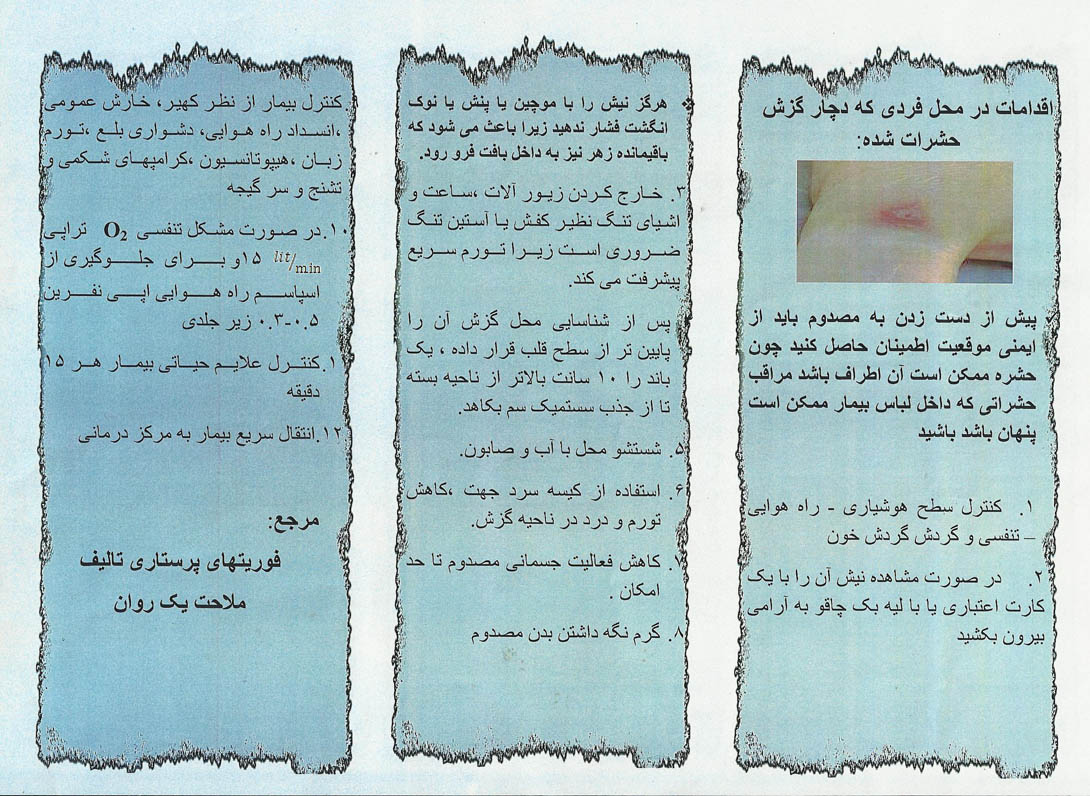 اقدامات در محل فردی که دچار گزش
حشرات شده:
پیش از دست زدن به مصدوم باید از
ایمنی موقعیت اطمینان حاصل کنید چون
حشره ممکن است آن اطراف باشد مراقب
حشراتی که داخل لباس بیمار ممکن است
پنهان باشد باشید
۱. کنترل سطح هوشیاری - راه هوایی
– تنفسی و گردش گردش خون
۲. در صورت مشاهده نیش آن را با یک
کارت اعتباری یا با لبه یک چاقو به آرامی
بیرون بکشید
❖ هرگز نیش را با موچین یا پنش یا نوک
انگشت فشار ندهید زیرا باعث می شود که
باقیمانده زهر نیز به داخل بافت فرو رود.
۳. خارج کردن زیور آلات ،ساعت و
اشیای تنگ نظیر کفش یا آستین تنگ
ضروری است زیرا تورم سریع
پیشرفت می کند.
پس از شناسایی محل گزش آن را
پایین تر از سطح قلب قرار داده ، یک
باند را ۱۰ سانت بالاتر از ناحیه بسته
تا از جذب سستمیک سم بکاهد.
۵. شستشو محل با آب و صابون.
۶. استفاده از کیسه سرد جهت ،کاهش
تورم و درد در ناحیه گزش.
۷. کاهش فعالیت جسمانی مصدوم تا حد
امکان .
۸. گرم نگه داشتن بدن مصدوم
.کنترل بیمار از نظر کهیر، خارش عمومی
،انسداد راه هوایی، دشواری بلع ،تورم
زبان ،هیپوتانسیون ،کرامپهای شکمی و
تشنج و سر گیجه
۱۰.در صورت مشکل تنفسی O2 تراپی
۱۵ lit/min و برای جلوگیری از
اسپاسم راه هوایی اپی نفرین
۰.۳-۰.۵ زیر جلدی
۱.کنترل علایم حیاتی بیمار هر ۱۵
دقیقه
۱۲.انتقال سریع بیمار به مرکز درمانی
مرجع:
فوریتهای پرستاری تالیف
ملاحت یک روان